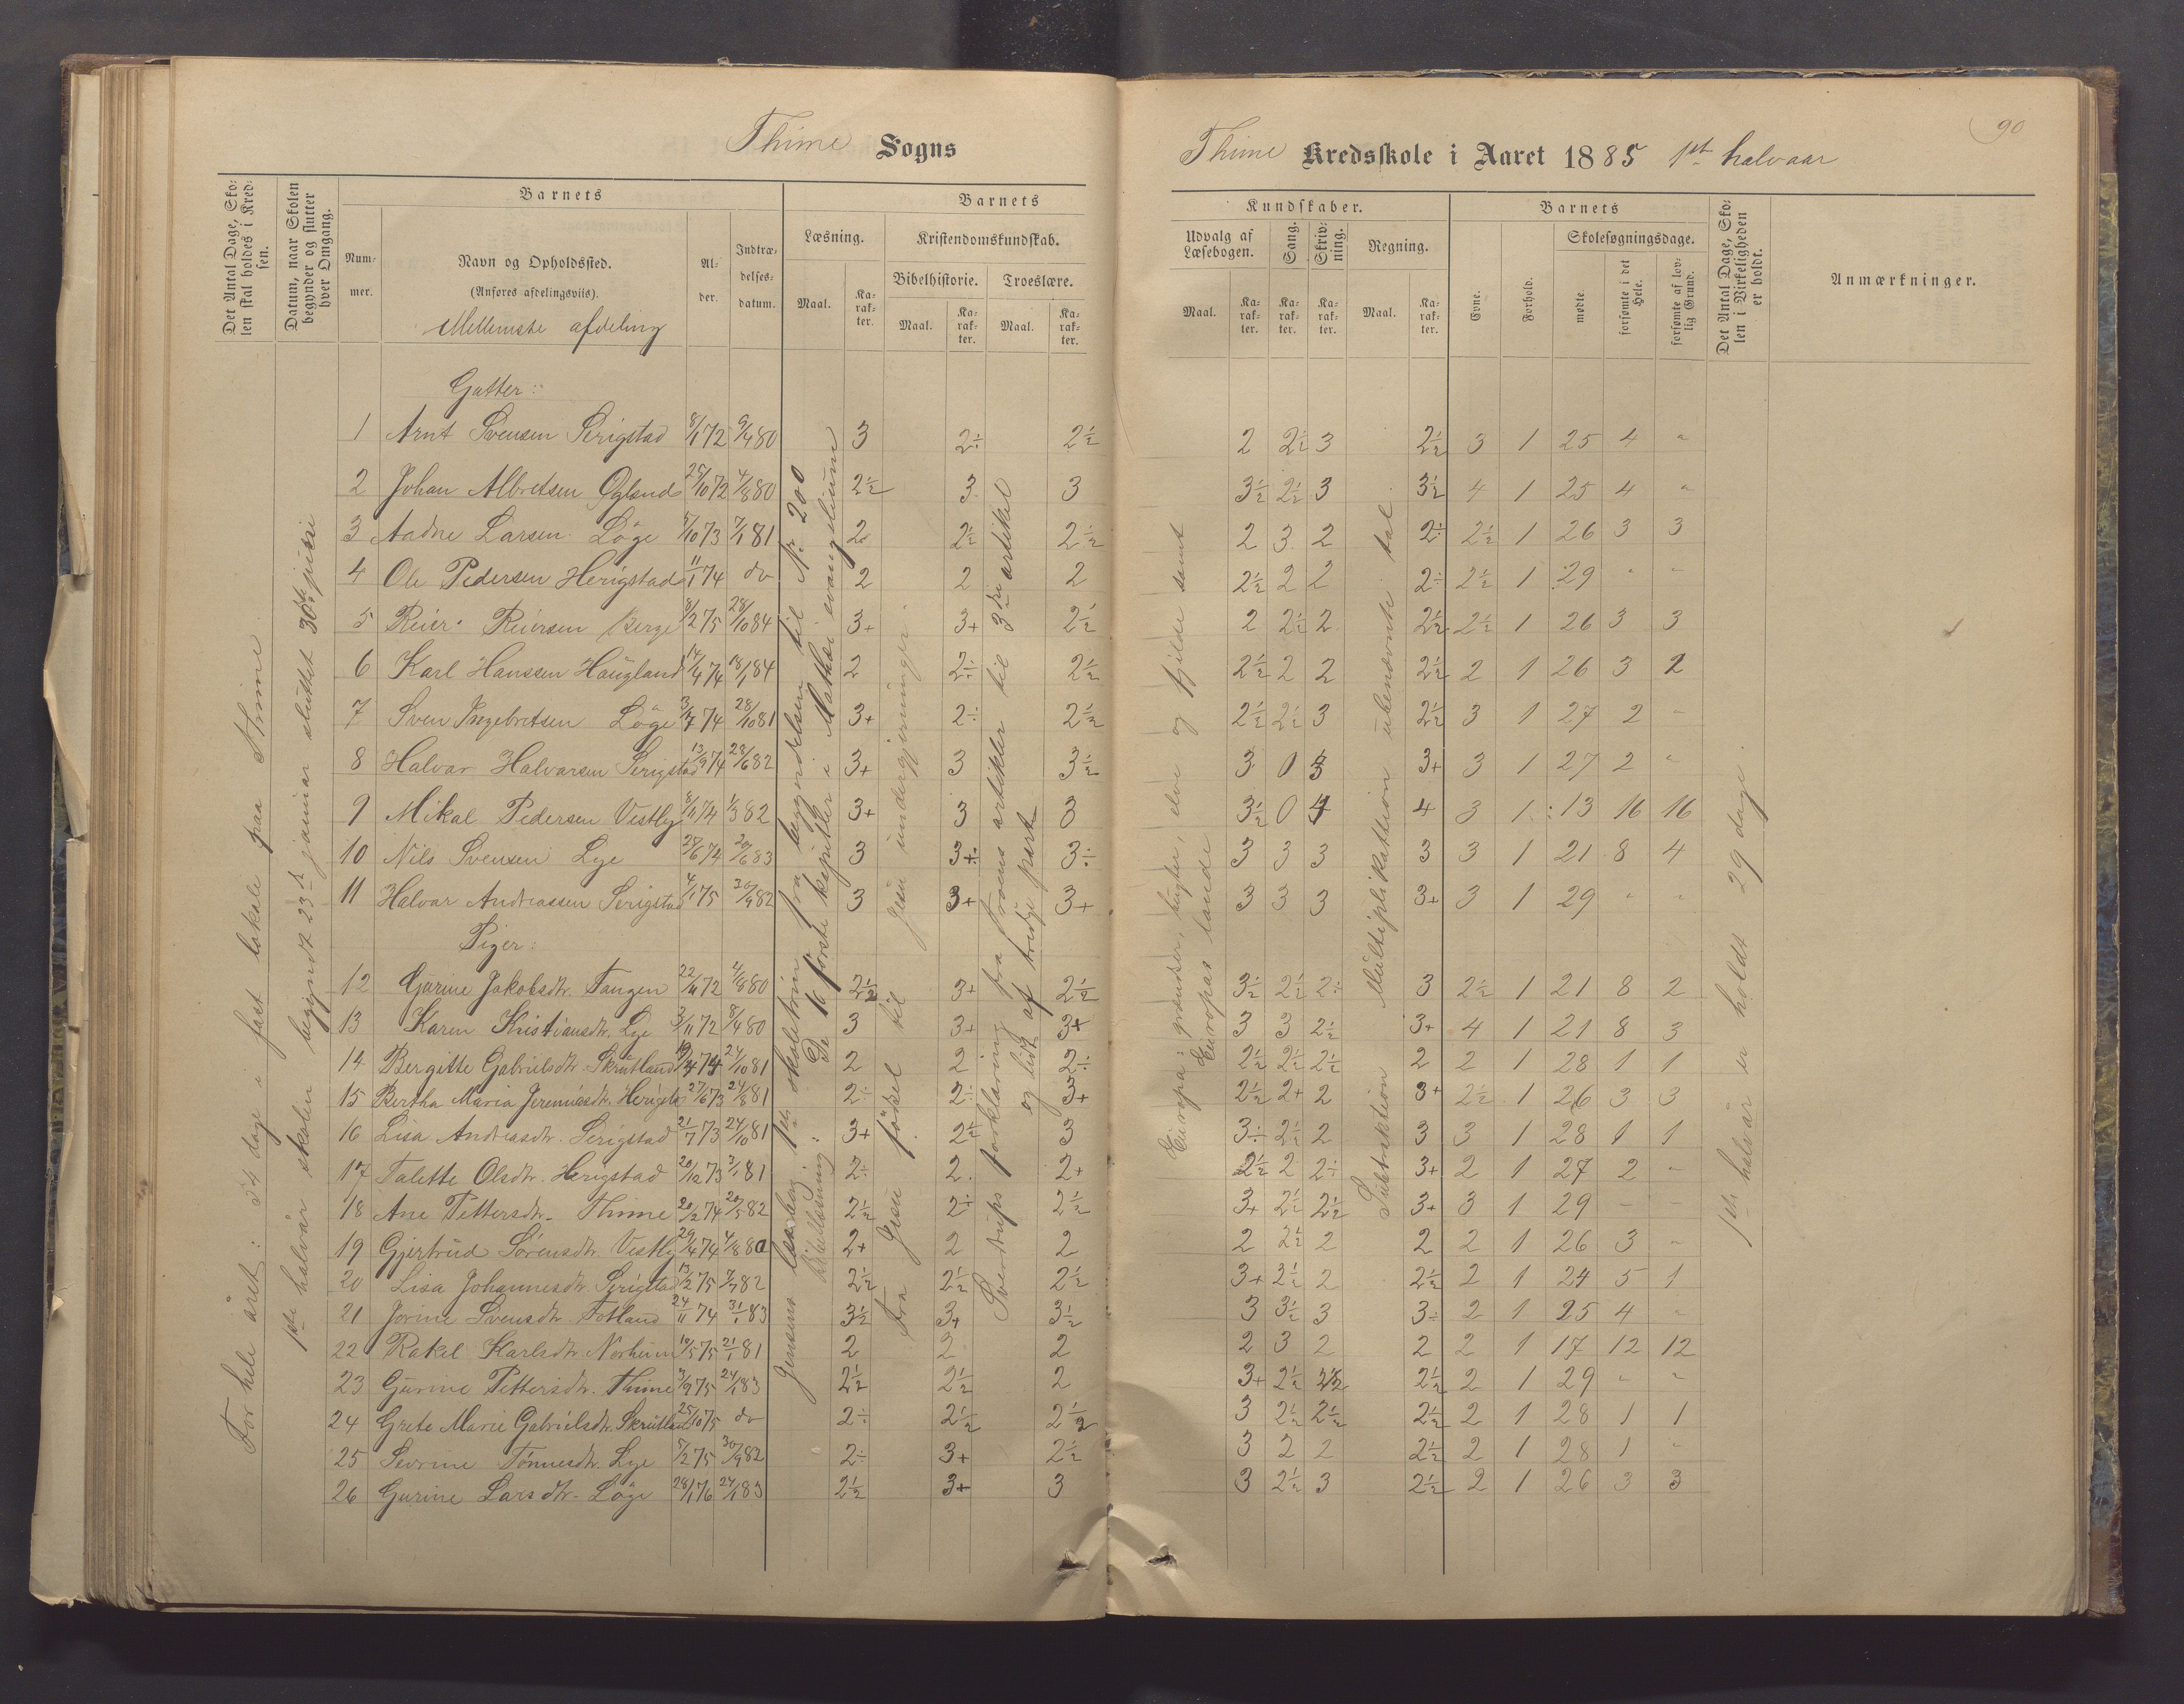 90
Thime Sogns
Thime Kredsskole i Aaret 1885 1st halvaar
Det Antal Dage, Skolen skal holdes i Kredsen.
Datum, naar Skolen begynder og slutter hver Omgang.
Barnets
Nummer.
Navn og Opholdssted.
(Anføres afdelingsvis).
Mellemste afdeling
Alder.
Indtrædelsesdatum.
Barnets
Læsning.
Maal.
Karakter.
Kristendomskundskab.
Bibelhistorie.
Maal.
Karakter.
Troeslære.
Maal.
Karakter.
Kundskaber.
Udvalg af Læsebogen.
Maal.
Karakter.
Sang.
Karakter.
Skrivning.
Karakter.
Regning.
Maal.
Karakter.
Barnets
Evne.
Forhold.
Skolesøgningsdage.
mødte.
forsømte i det Hele.
forsømte af lovlig Grund.
Det Antal Dage, Skolen i Virkeligheden er holdt.
Anmærkninger.
For hele året: 54 dage i fast lokale paa Thime
1ste halvår skolen begyndt 23de januar sluttet 30te juni
Jensens læsebog 1ste skoletrin fra begyndelsen til Nr 200
Bibellæsning De 16 første kapitler i Mathæi evangelium
Fra Jesu fødsel til Jesu undergjerninger
Sverdrups forklaring fra troens artikler til 3die artikel
og lidt af tredje part
Europa: grænser, bugter, elve og fjelde samt
Europas lande
Subtraktion Multiplikation ubenævnte tal
1ste halvår er holdt 29 dage
Gutter:
1 Arnt Svensen Serigstad 8/1 72 9/4 80 3 2÷ 2½ 2 2½ 3 2½ 3 1 25 4 "
2 Johan Albretsen Øgland 25/10 72 4/8 80 2½ 3 3 3½ 2½ 3 3½ 4 1 25 4 "
3 Aadne Larsen Löge 5/10 73 7/1 81 2 2½ 2½ 2 3 2 2÷ 2½ 1 26 3 3
4 Ole Pedersen Herigstad 11/1 74 do 2 2 2 2½ 2 2 2÷ 2½ 1 29 " "
5 Reier Reiersen Berge 8/2 75 28/10 84 3+ 3+ 2½ 2 2½ 2 2½ 2½ 1 26 3 3
6 Karl Hanssen Haugland 14/4 74 18/1 84 2 2÷ 2½ 2½ 2 2 2½ 2 1 26 3 2
7 Sven Ingebretsen Löge 3/7 74 28/10 81 3+ 2÷ 2½ 2½ 2½ 3 2½ 3 1 27 2 "
8 Halvar Halvarsen Serigstad 13/9 74 28/6 82 3+ 3 3½ 3 0 3 3+ 3 1 27 2 "
9 Mikal Pedersen Vestly 8/11 74 1/3 82 3+ 3 3 3½ 0 4 4 3 1 13 16 16
10 Nils Svensen Lye 28/6 74 20/6 83 3 3+ 3÷ 3 3 3 3 3 1 21 8 4
11 Halvar Andreassen Serigstad 4/1 75 30/9 82 3 3+ 3+ 3 3 3 3+ 3 1 29 " "
Piger:
12 Gurine Jakobsdtr. Tangen 22/11 72 4/8 80 2½ 3+ 2½ 3½ 2½ 2÷ 3 2½ 1 21 8 2
13 Karen Kristiansdtr. Lye 3/11 72 8/4 80 3 3+ 3+ 3 3 2½ 3+ 4 1 21 8 3
14 Bergitte Gabrielsdtr. Skrutland 74 24/10 81 2 2 2÷ 2½ 2½ 2½ 2 2 1 28 1 1
15 Bertha Maria Jeremiasdtr. Herigstad 27/6 73 24/8 81 2÷ 2÷ 3+ 2½ 2+ 2 3+ 2½ 1 26 3 3
16 Lisa Andreasdtr. Serigstad 21/7 73 24/10 81 3+ 2½ 3 3÷ 2½ 2 3 3 1 28 1 1
17 Talette Olsdtr. Herigstad 20/12 73 7/1 81 2÷ 2 2+ 2½ 2 2÷ 3+ 2 1 27 2 "
18 Ane Pettersdtr. Thime 20/2 74 20/5 82 2½ 2÷ 2½ 3+ 2½ 2½ 3+ 3 1 29 " "
19 Gjertrud Sørensdtr. Vestly 29/4 74 4/8 80 2+ 2 2 2 2½ 2 2 2 1 26 3 "
20 Lisa Johannesdtr. Serigstad 13/2 75 7/7 82 2½ 2½ 2½ 3+ 3½ 2 2½ 2 1 24 5 1
21 Jorine Svensdtr. Fotland 24/11 74 31/1 83 3½ 3+ 3½ 3 3½ 3 3÷ 2 1 25 4 "
22 Rakel Karlsdtr. Norheim 10/5 75 21/1 81 2 2 2 2 3 2 2 2 1 17 12 12
23 Gurine Pettersdtr. Thime 3/9 75 24/1 83 2½ 2½ 2 3+ 2½ 2½ 2½ 2 1 29 " "
24 Grete Marie Gabrielsdtr. Skrutland 25/10 75 do 2÷ 2½ 2½ 3 2½ 2½ 2½ 2 1 28 1 1
25 Severine Tönnesdtr. Lye 5/2 75 30/9 82 2÷ 3+ 2½ 3 2 2 2½ 2 1 28 1 "
26 Gurine Larsdtr. Löge 28/1 76 24/1 83 2½ 3+ 3 3 2½ 3 2½ 2 1 26 3 3